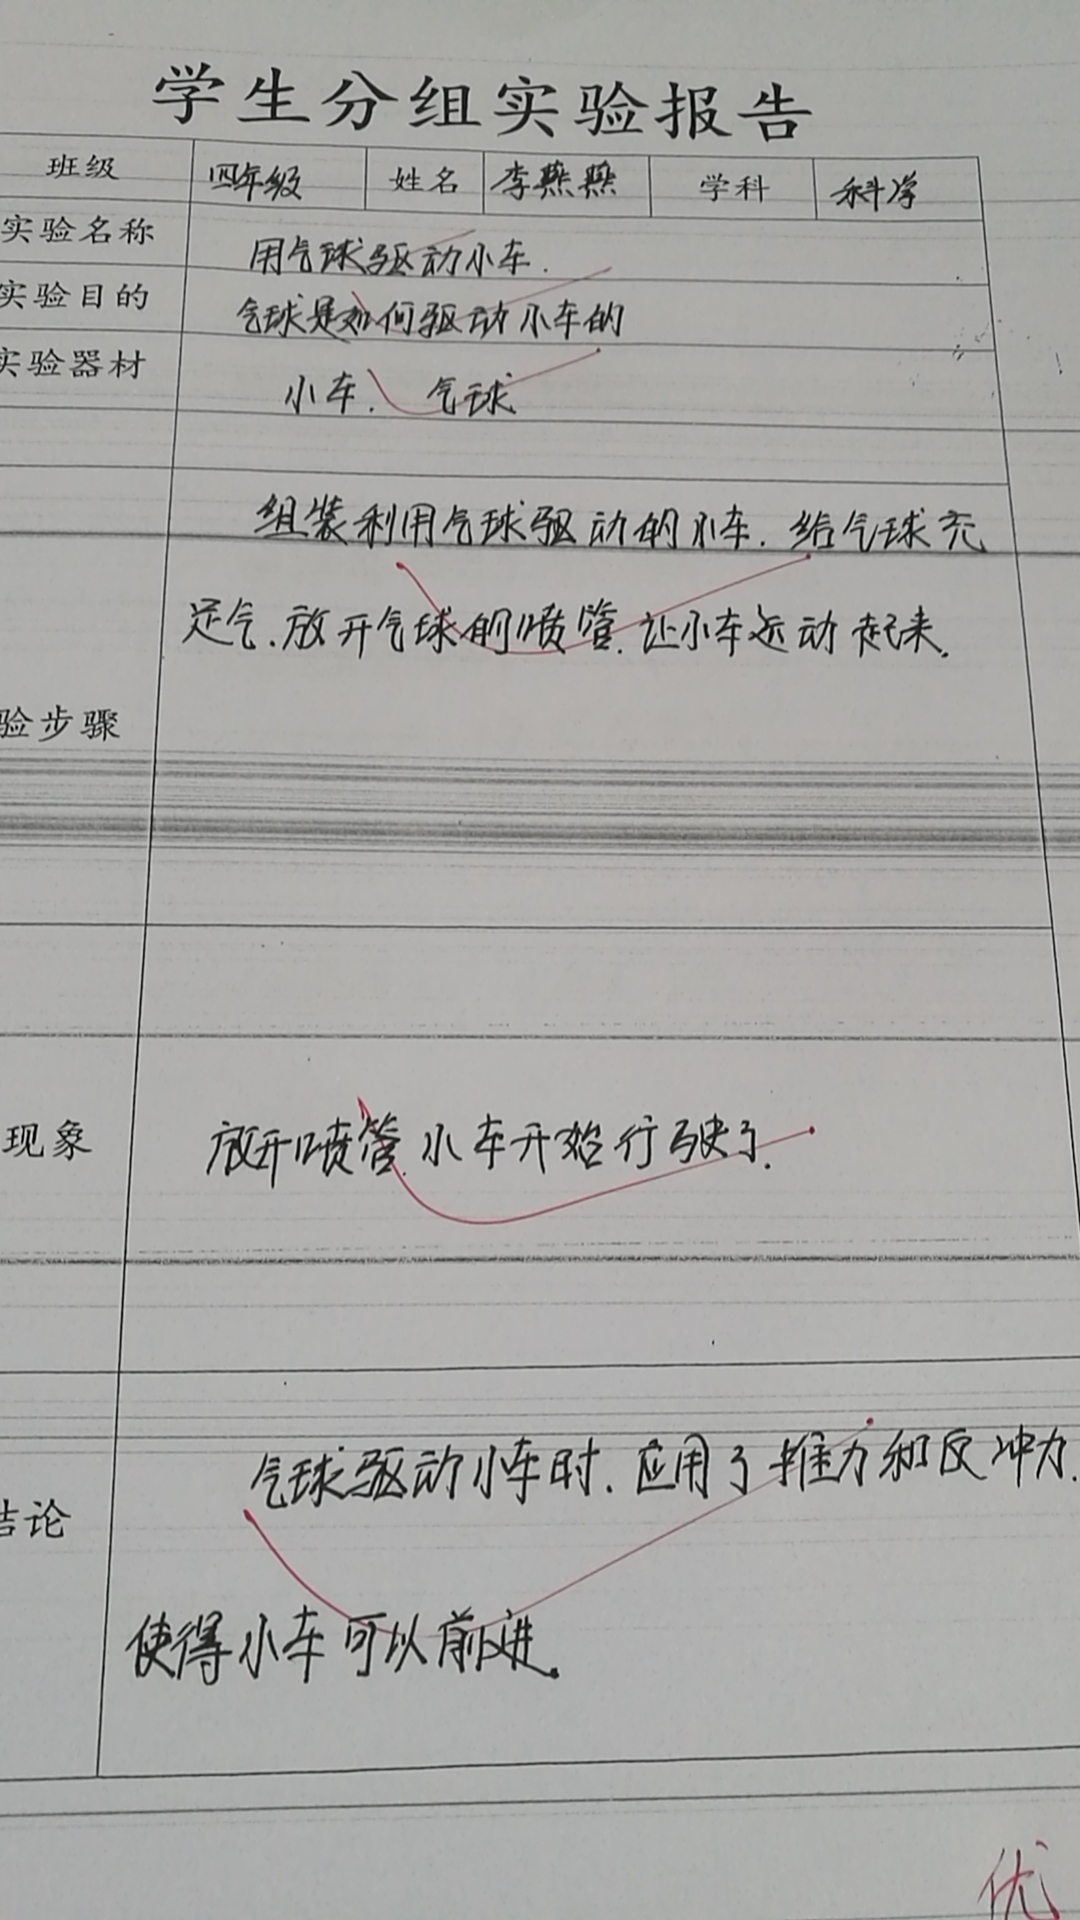 学生分组实验报告
班级 四年级 姓名 李燕燕 学科 科学
实验名称 用气球驱动小车.
实验目的 气球是如何驱动小车的
实验器材 小车. 气球
组装利用气球驱动的小车. 给气球充
足气.放开气球的喷管.让小车运动起来.
验步骤
现象 放开喷管.小车开始行驶了.
气球驱动小车时.应用了推力和反冲力.
结论
使得小车可以前进.
优